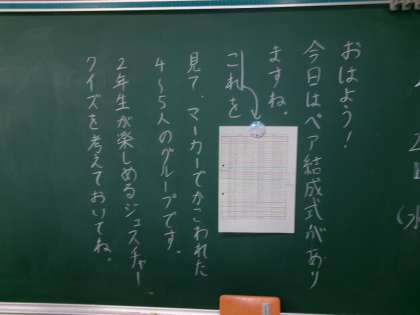 おはよう！
今日はペア結成式があり
ますね。
これを
見て、マーカーでかこわれた
4〜5人のグループです。
2年生が楽しめるジェスチャー
クイズを考えておいてね。